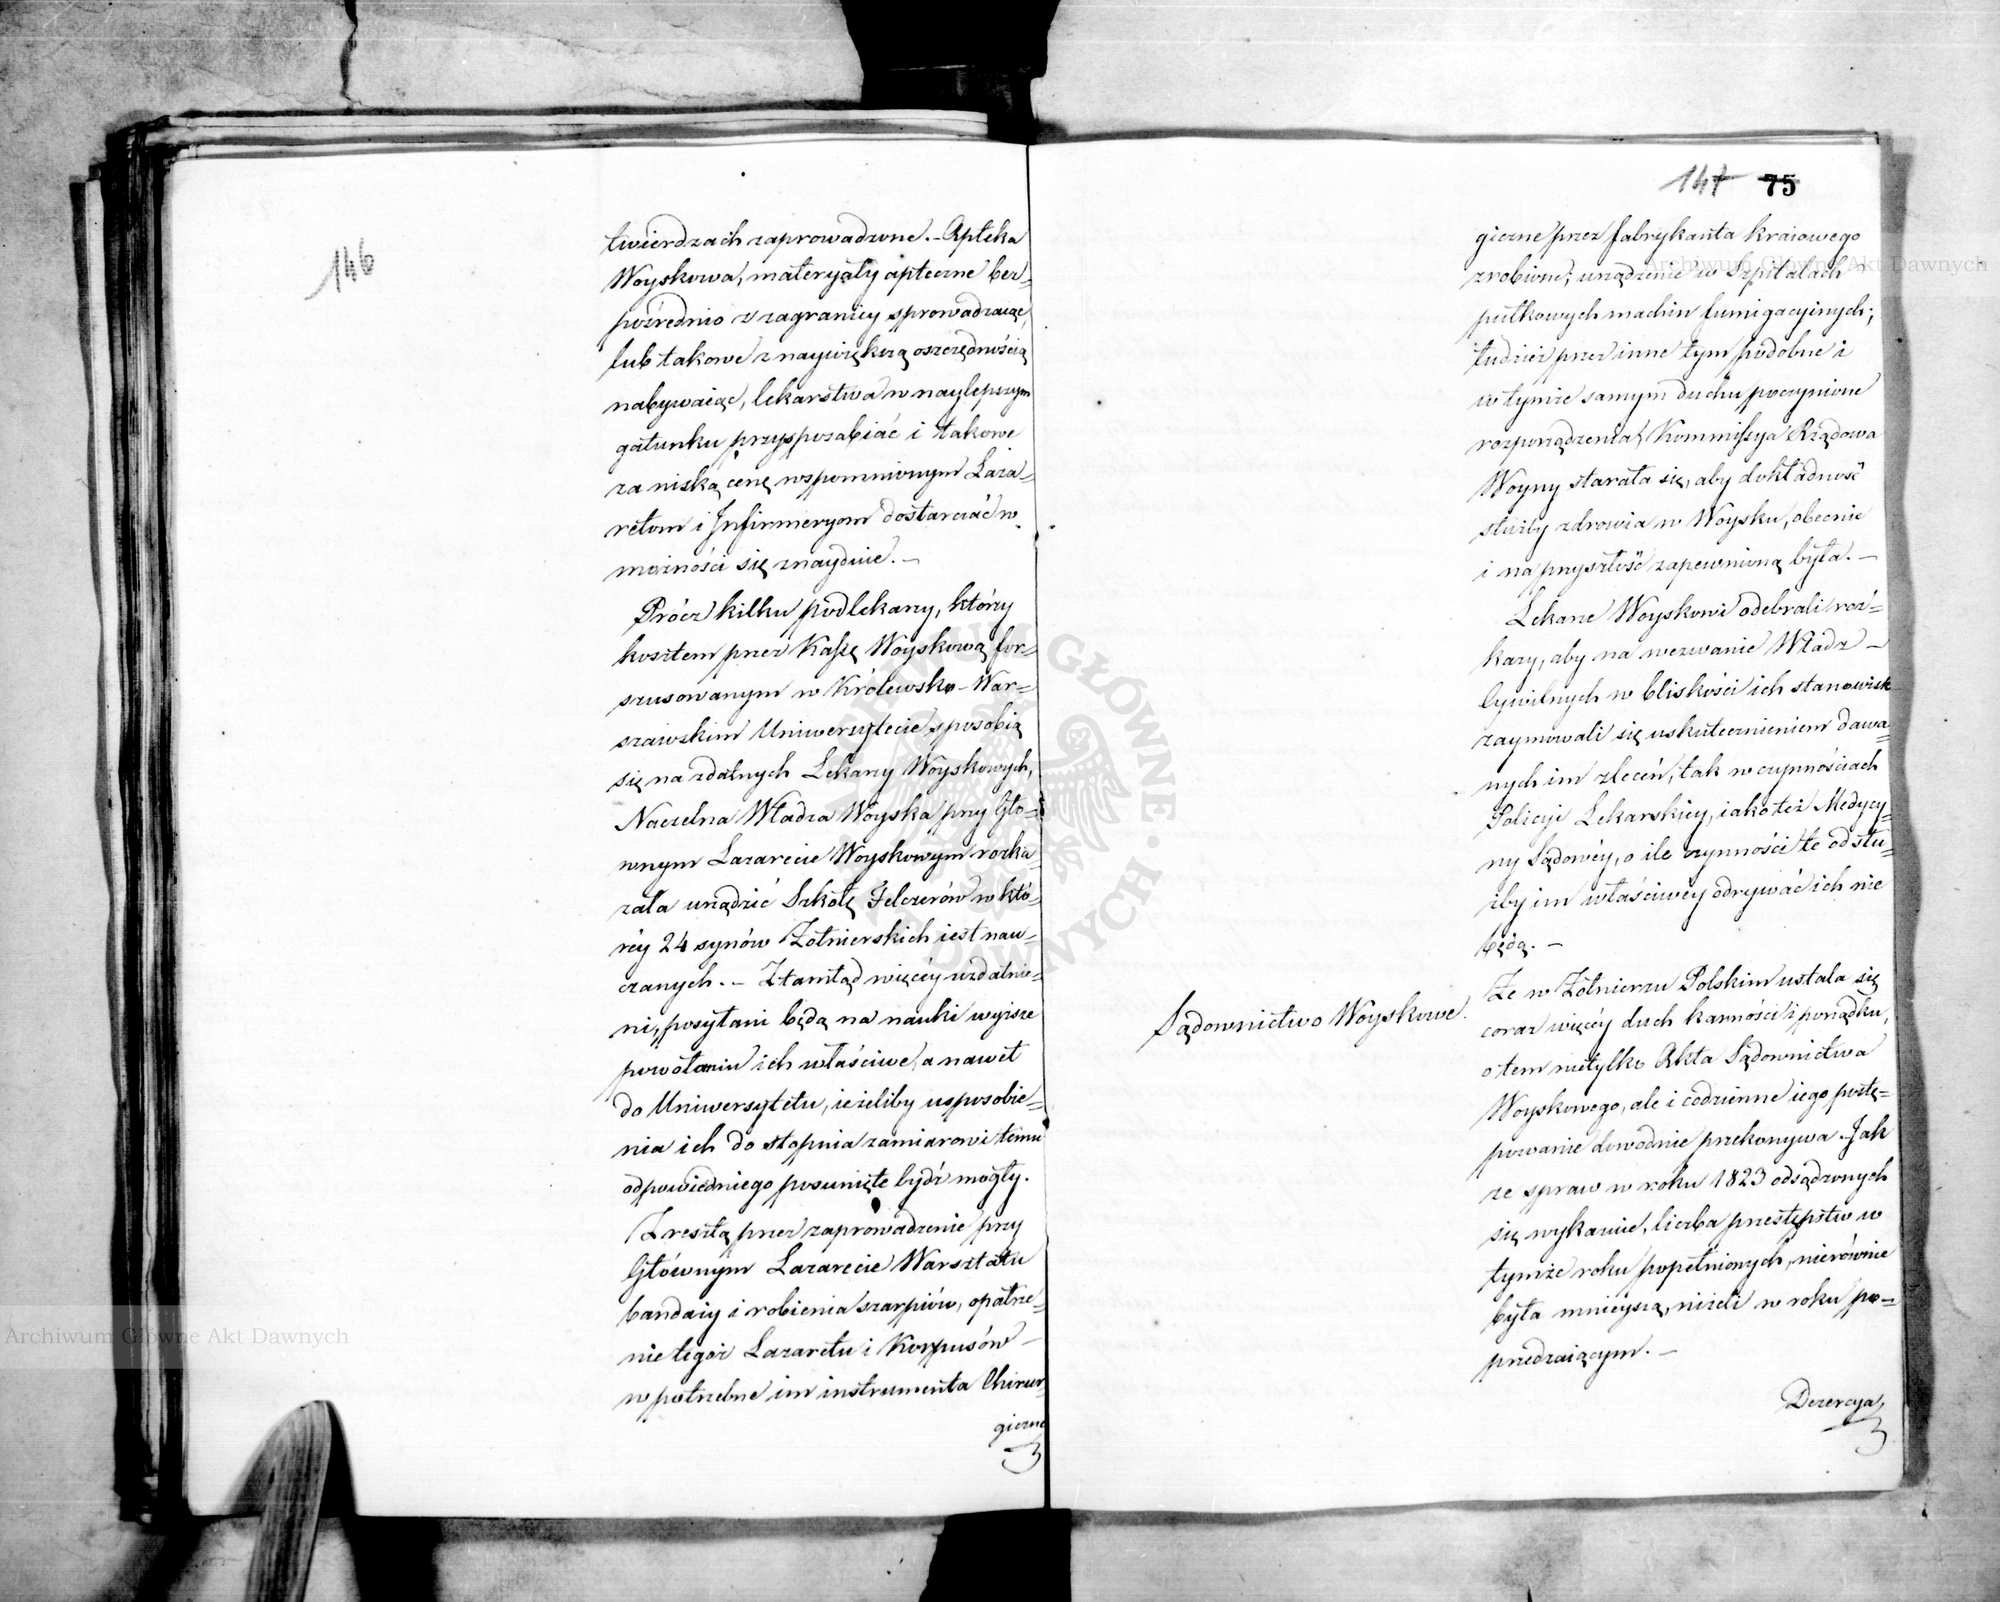 146
twierdzach zaprowadzone. - Apteka
Woyskowa, materyały apteczne bez=
pośrednio z zagranicy sprowadzaiąc,
lub takowe z naywiększą oszczędnością
nabywaiąc, lekarstwa w naylepszym
gatunku przysposabiać i takowe
za niską cenę wspomnionym Laza=
retom i Infirmeryom dostarczać w
możności się znayduie. -
Prócz kilku podlekarzy, którzy
kosztem przez Kassę Woyskową for=
szusowanym w Królewsko-War=
szawskim Uniwersytecie sposobią
się na zdatnych Lekarzy Woyskowych,
Naczelna Władza Woyska przy Głó=
wnym Lazarecie Woyskowym rozka=
zała urządzić Szkołę Felczerów w któ=
réy 24 synów Żołnierskich iest nau=
czanych. - Ztamtąd więcéy uzdatnie=
ni, posyłani będą na nauki wyższe
powołaniu ich właściwe, a nawet
do Uniwersytetu, ieżeliby usposobie=
nia ich do stopnia zamiarowi temu
odpowiedniego posunięte bydź mogły.
Zresztą przez zaprowadzenie przy
Głównym Lazarecie Warsztatu
bandaży i robienia szarpiów, opatrze=
nie tegoż Lazaretu i Korpusów -
w potrzebne im instrumenta Chirur=
giczne
147 75
giczne przez fabrykanta kraiowego
zrobione; urządzenie w Szpitalach
pułkowych machin fumigacyinych;
tudzież przez inne tym podobne i
w tymże samym duchu poczynione
rozporządzenia, Kommissya Rządowa
Woyny starała się, aby dokładność
służby zdrowia w Woysku, obecnie
i na przyszłość zapewnioną była. -
Lekarze Woyskowi odebrali roz=
kazy, aby na wezwanie Władz -
Cywilnych w bliskości ich stanowisk
zaymowali się uskutecznieniem dawa=
nych im zleceń, tak w czynnościach
Policyi Lekarskiéy, iako też Medycy=
ny Sądowéy, o ile czynności te od słu=
żby im właściwéy odrywać ich nie
będą. -
Sądownictwo Woyskowe.
Że w Żołnierzu Polskim ustala się
coraz więcéy duch karności i porządku,
o tem nietylko Akta Sądownictwa
Woyskowego, ale i codzienne iego postę=
powanie dowodnie przekonywa. Jak
ze spraw w roku 1823 odsądzonych
się wykazuie, liczba przestępstw w
tymże roku popełnionych, nierównie
była mnieyszą, niżeli w roku po=
przedzaiącym. -
Dezercya,
Archiwum Główne Akt Dawnych
Archiwum Główne Akt Dawnych
ARCHIWUM GŁÓWNE AKT DAWNYCH